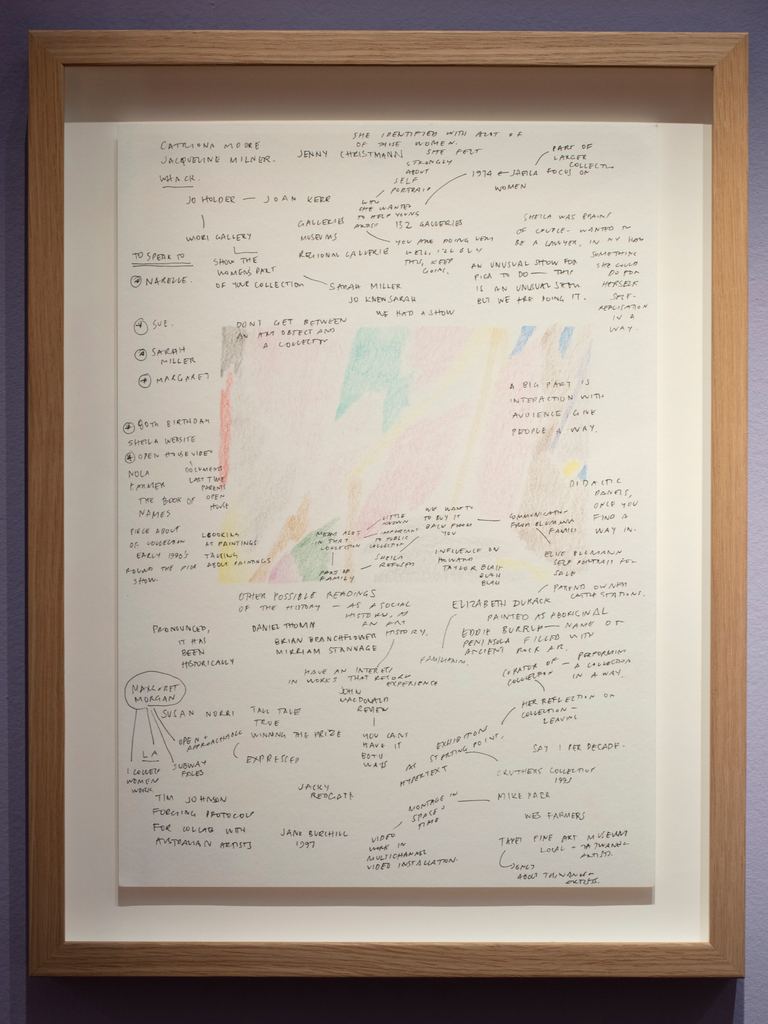 CATRIONA MOORE
JACQUELINE MILNER.
WHACK.
JENNY CHRISTMANN
SHE IDENTIFIED WITH ALOT OF
OF THESE WOMEN.
SHE FELT
STRONGLY
ABOUT
SELF
PORTRAIT
1974 SHEILA FOCUS ON
WOMEN
PART OF
LARGER
COLLECTION
JO HOLDER — JOAN KERR
SHE WANTED
TO HELP YOUNG
ARTIST
MORI GALLERY
GALLERIES
MUSEUMS
REGIONAL GALLERIE
152 GALLERIES
YOU ARE DOING VERY
WELL,
THIS, KEEP
GOING.
SHEILA WAS BRAINS
OF COUPLE. WANTED TO
BE A LAWYER. IN MY HOW
SOMETHING
SHE COULD
DO FOR
HERSELF
SELF-
REALISATION
IN A
WAY.
TO SPEAK TO
SHOW THE
WOMENS PART
OF YOUR COLLECTION
SARAH MILLER
JO KNEW SARAH
WE HAD A SHOW
AN UNUSUAL SHOW FOR
PICA TO DO — THIS
IS AN UNUSUAL SHOW
BUT WE ARE DOING IT.
NARELLE.
SUE.
SARAH
MILLER
MARGARET
DONT GET BETWEEN
AN ART OBJECT AND
A COLLECTOR
A BIG PART IS
INTERACTION WITH
AUDIENCE GIVE
PEOPLE A WAY.
80TH BIRTHDAY
SHEILA WEBSITE
OPEN HOUSE VIDEO
NOLA
FARMER
THE BOOK OF
NAMES
DOCUMENTS
LAST TIME
PARENTS
OPEN
HOUSE
DIDACTIC
PANELS,
ONCE YOU
FIND A
WAY IN.
PIECE ABOUT
OF COLLECTION
EARLY 1990'S
ROUND THE PICA
SHOW.
LOOKING
AT PAINTINGS
TALKING
ABOUT PAINTINGS
MEANS ALOT
IN THAT
COLLECTION
PART OF
FAMILY
LITTLE
KNOWN
IMPORTANT
TO PUBLIC
COLLECTION
SHEILA
REFUSED
WE WANT
TO BUY IT
BACK FROM
YOU
COMMUNICATION
FROM BLUMANN
FAMILY
INFLUENCE ON
HOWARD
TAYLOR BLAH
BLAH
BLAH
ELISE BLUMANN
SELF PORTRAIT FOR
SALE
OTHER POSSIBLE READINGS
OF THE HISTORY — AS A SOCIAL
HISTORY, AS
AN ART
HISTORY.
ELIZABETH DURACK
PARENTS OWNED
CATTLE STATIONS.
PAINTED AS ABORIGINAL
EDDIE BURRUP — NAME OF
PENINSULA FILLED WITH
ANCIENT ROCK ART.
PRONOUNCED,
IT HAS
BEEN
HISTORICALLY
DANIEL THOMAS
BRIAN BRANCHFLOWER
MIRRIAM STANNAGE
HAVE AN INTEREST
IN WORKS THAT RETURN
EXPERIENCE
CURATOR OF
COLLECTION
PERFORMING
A COLLECTION
IN A WAY.
MARGARET
MORGAN
JOHN
MACDONALD
REVIEW
HER REFLECTION ON
COLLECTION —
LEAVING
SUSAN NORRI
TALL TALE
TRUE
WINNING THE PRIZE
YOU CANT
HAVE IT
BOTH
WAYS
EXHIBITION
AS STARTING POINT.
HYPERTEXT
SAY 1 PER DECADE.
LA
I COLLECT
WOMENS
WORK
OPEN +
APPROACHABLE
SUBWAY
TILES
EXPRESSED
CRUTHERS COLLECTION
1993
TIM JOHNSON
FORGING PROTOCOLS
FOR COLLAB WITH
AUSTRALIAN ARTISTS
JACKY
REDGATE
JANE BURCHILL
1997
MONTAGE IN
SPACE +
TIME
MIKE PARR
WES FARMERS
VIDEO
WORK IN
MULTICHANNEL
VIDEO INSTALLATION.
FINE ART MUSEUM
LOCAL —
ARTISTS.